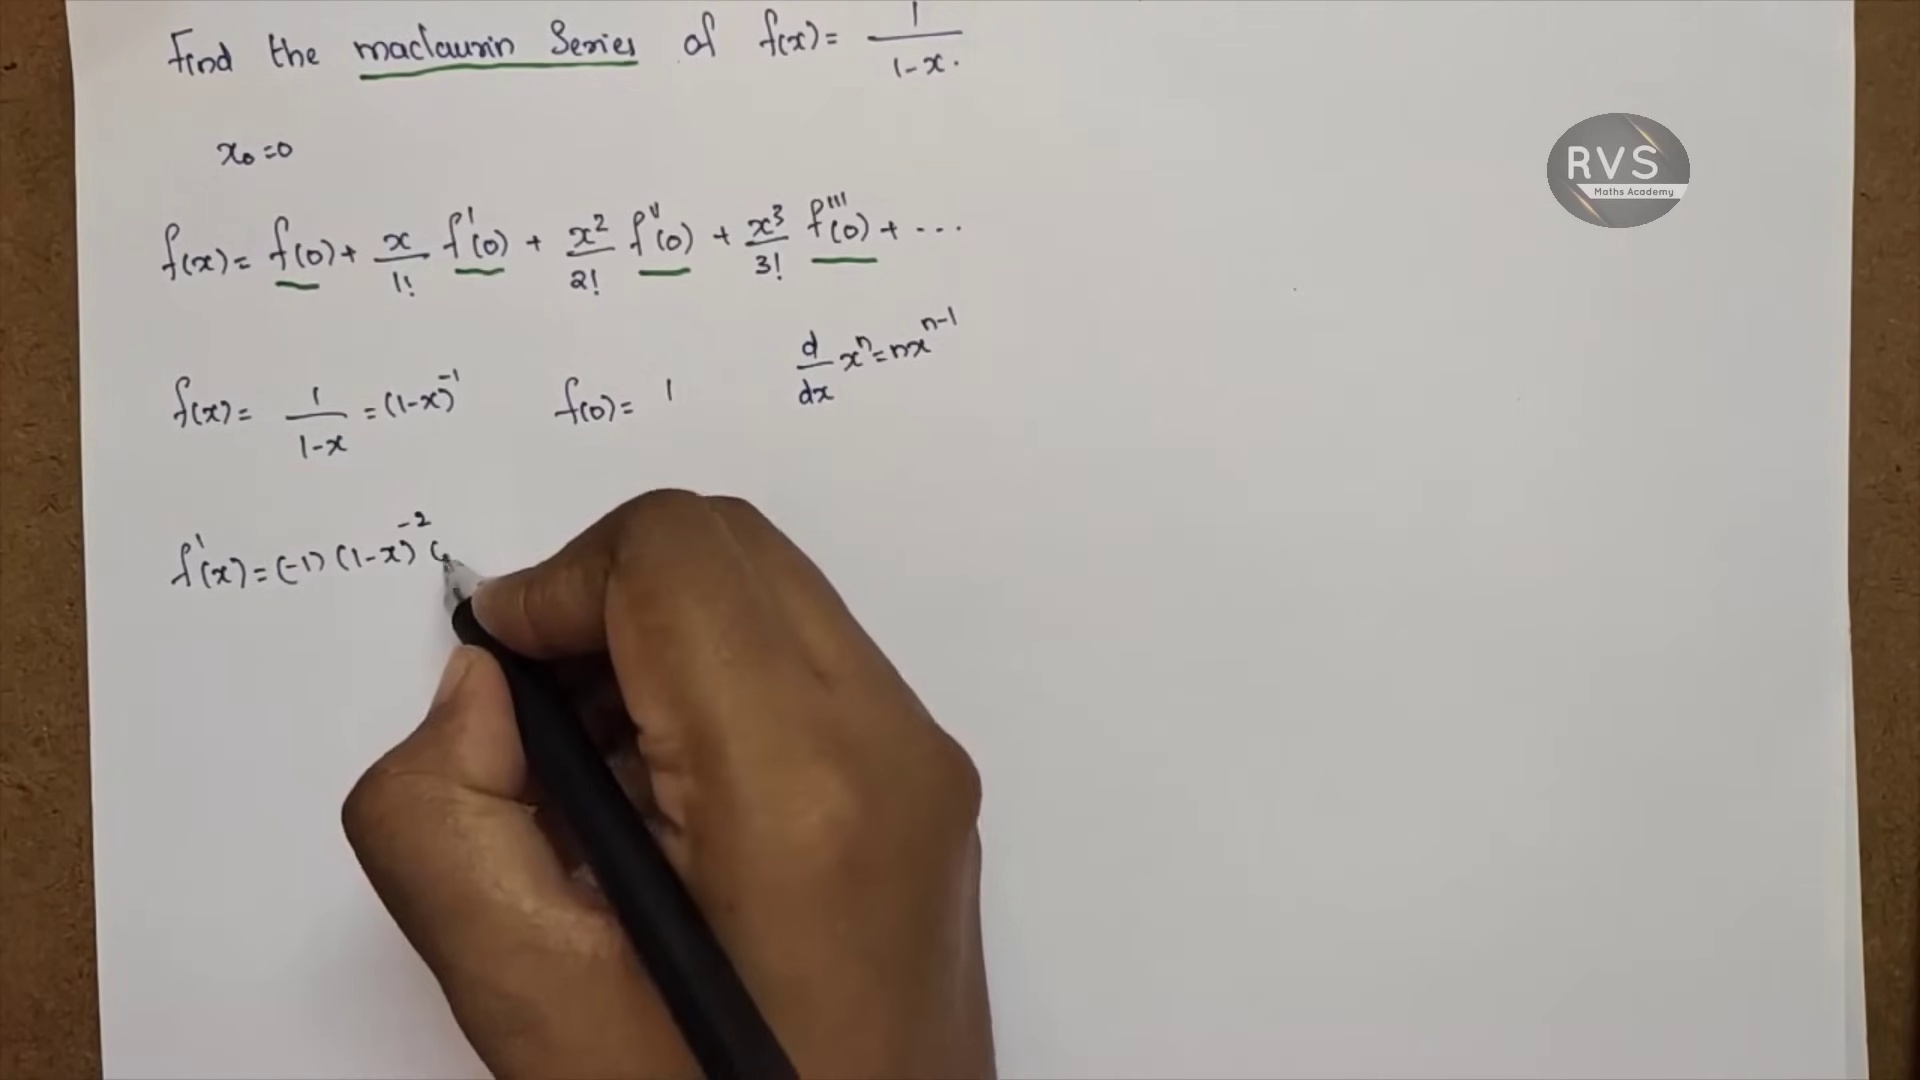 Find the maclaurin Series of f(x) = 1/1-x.
RVS
Maths Academy
x₀=0
f(x) = f(0) + x/1! f'(0) + x²/2! f''(0) + x³/3! f'''(0) + ...
d/dx xⁿ = nxⁿ⁻¹
f(x) = 1/1-x = (1-x)⁻¹ f(0) = 1
f'(x) = (-1) (1-x)⁻² (